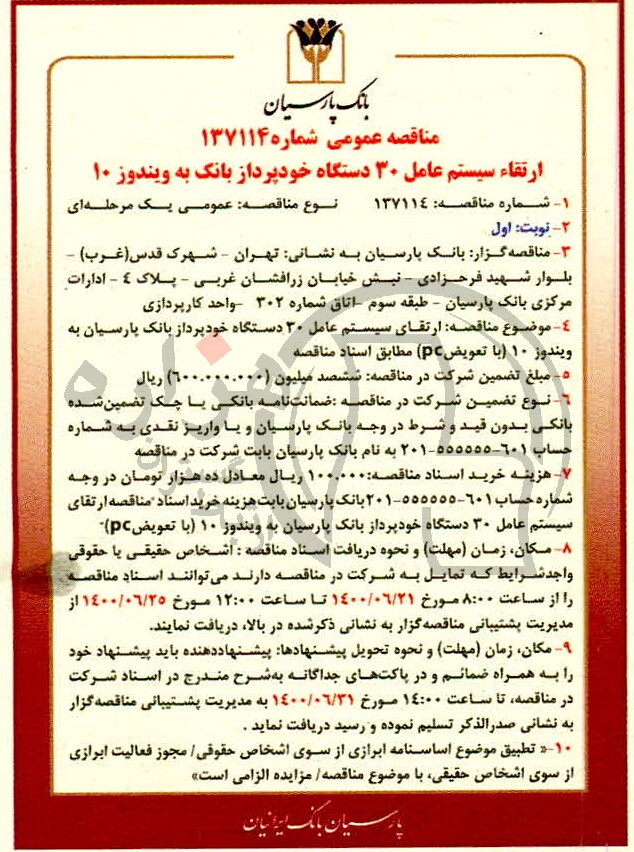 بانک پارسیان
مناقصه عمومی شماره ۱۳۷۱۱۴
ارتقاء سیستم عامل ۳۰ دستگاه خودپرداز بانک به ویندوز ۱۰
۱- شماره مناقصه: ۱۳۷۱۱۴ نوع مناقصه: عمومی یک مرحله‌ای
۲- نوبت: اول
۳- مناقصه‌گزار: بانک پارسیان به نشانی: تهران - شهرک قدس(غرب) -
بلوار شهید فرحزادی - نبش خیابان زرافشان غربی - پلاک ۴ - ادارات
مرکزی بانک پارسیان - طبقه سوم -اتاق شماره ۳۰۲ -واحد کارپردازی
۴- موضوع مناقصه: ارتقای سیستم عامل ۳۰ دستگاه خودپرداز بانک پارسیان به
ویندوز ۱۰ (با تعویض pc) مطابق اسناد مناقصه
۵- مبلغ تضمین شرکت در مناقصه: ششصد میلیون (۶۰۰.۰۰۰.۰۰۰) ریال
۶- نوع تضمین شرکت در مناقصه :ضمانت‌نامه بانکی یا چک تضمین‌شده
بانکی بدون قید و شرط در وجه بانک پارسیان و یا واریز نقدی به شماره
حساب ۶۰۱-۵۵۵۵۵۵-۲۰۱ به نام بانک پارسیان بابت شرکت در مناقصه
۷- هزینه خرید اسناد مناقصه: ۱۰۰.۰۰۰ ریال معادل ده هزار تومان در وجه
شماره حساب ۶۰۱-۵۵۵۵۵۵-۲۰۱ بانک پارسیان بابت هزینه خرید اسناد "مناقصه ارتقای
سیستم عامل ۳۰ دستگاه خودپرداز بانک پارسیان به ویندوز ۱۰ (با تعویض pc)"
۸- مکان، زمان (مهلت) و نحوه دریافت اسناد مناقصه : اشخاص حقیقی یا حقوقی
واجدشرایط که تمایل به شرکت در مناقصه دارند می‌توانند اسناد مناقصه
را از ساعت ۸:۰۰ مورخ ۱۴۰۰/۰۶/۲۱ تا ساعت ۱۲:۰۰ مورخ ۱۴۰۰/۰۶/۲۵ از
مدیریت پشتیبانی مناقصه‌گزار به نشانی ذکرشده در بالا، دریافت نمایند.
۹- مکان، زمان (مهلت) و نحوه تحویل پیشنهادها: پیشنهاددهنده باید پیشنهاد خود
را به همراه ضمائم و در پاکت‌های جداگانه به‌شرح مندرج در اسناد شرکت
در مناقصه، تا ساعت ۱۴:۰۰ مورخ ۱۴۰۰/۰۶/۳۱ به مدیریت پشتیبانی مناقصه‌گزار
به نشانی صدرالذکر تسلیم نموده و رسید دریافت نماید .
۱۰-« تطبیق موضوع اساسنامه ابرازی از سوی اشخاص حقوقی/ مجوز فعالیت ابرازی
از سوی اشخاص حقیقی، با موضوع مناقصه/ مزایده الزامی است»
پارسیان بانک ایرانیان